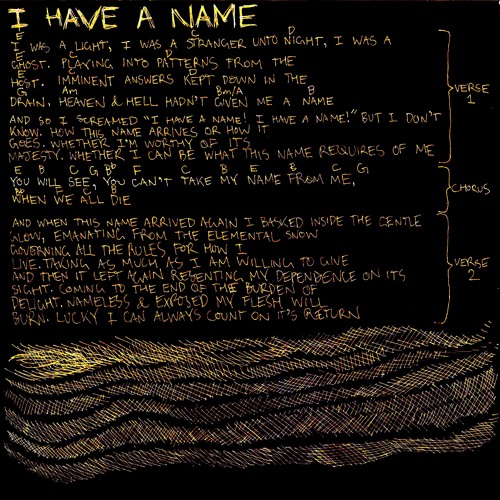 I HAVE A NAME
E C D
I WAS A LIGHT, I WAS A STRANGER UNTO NIGHT, I WAS A
E C D
GHOST. PLAYING INTO PATTERNS FROM THE
E C D
HOST. IMMINENT ANSWERS KEPT DOWN IN THE
G Am Bm/A B
DRAIN. HEAVEN & HELL HADN'T GIVEN ME A NAME
VERSE
1
AND SO I SCREAMED "I HAVE A NAME! I HAVE A NAME!" BUT I DON'T
KNOW. HOW THIS NAME ARRIVES OR HOW IT
GOES. WHETHER I'M WORTHY OF ITS
MAJESTY. WHETHER I CAN BE WHAT THIS NAME REQUIRES OF ME
E B C G Bb F C B E B C G
YOU WILL SEE, YOU CAN'T TAKE MY NAME FROM ME,
Bb F C B
WHEN WE ALL DIE
CHORUS
AND WHEN THIS NAME ARRIVED AGAIN I BASKED INSIDE THE GENTLE
GLOW, EMANATING FROM THE ELEMENTAL SNOW
GOVERNING ALL THE RULES FOR HOW I
LIVE. TAKING AS MUCH AS I AM WILLING TO GIVE
AND THEN IT LEFT AGAIN RESENTING MY DEPENDENCE ON ITS
SIGHT. COMING TO THE END OF THE BURDEN OF
DELIGHT. NAMELESS & EXPOSED MY FLESH WILL
BURN. LUCKY I CAN ALWAYS COUNT ON IT'S RETURN
VERSE
2